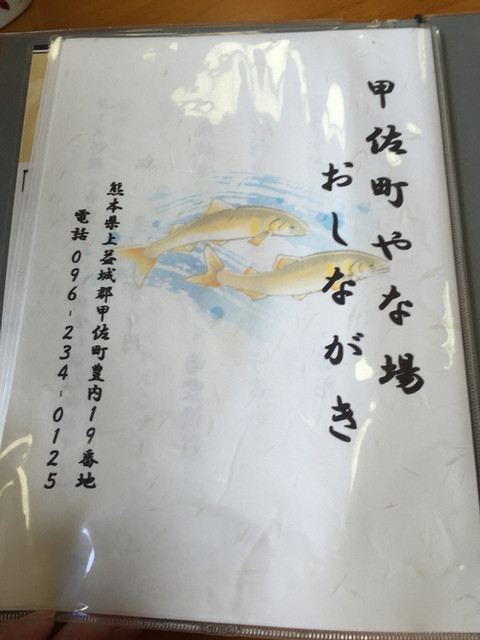 甲佐町やな場
おしながき
熊本県上益城郡甲佐町豊内19番地
電話 096-234-0125